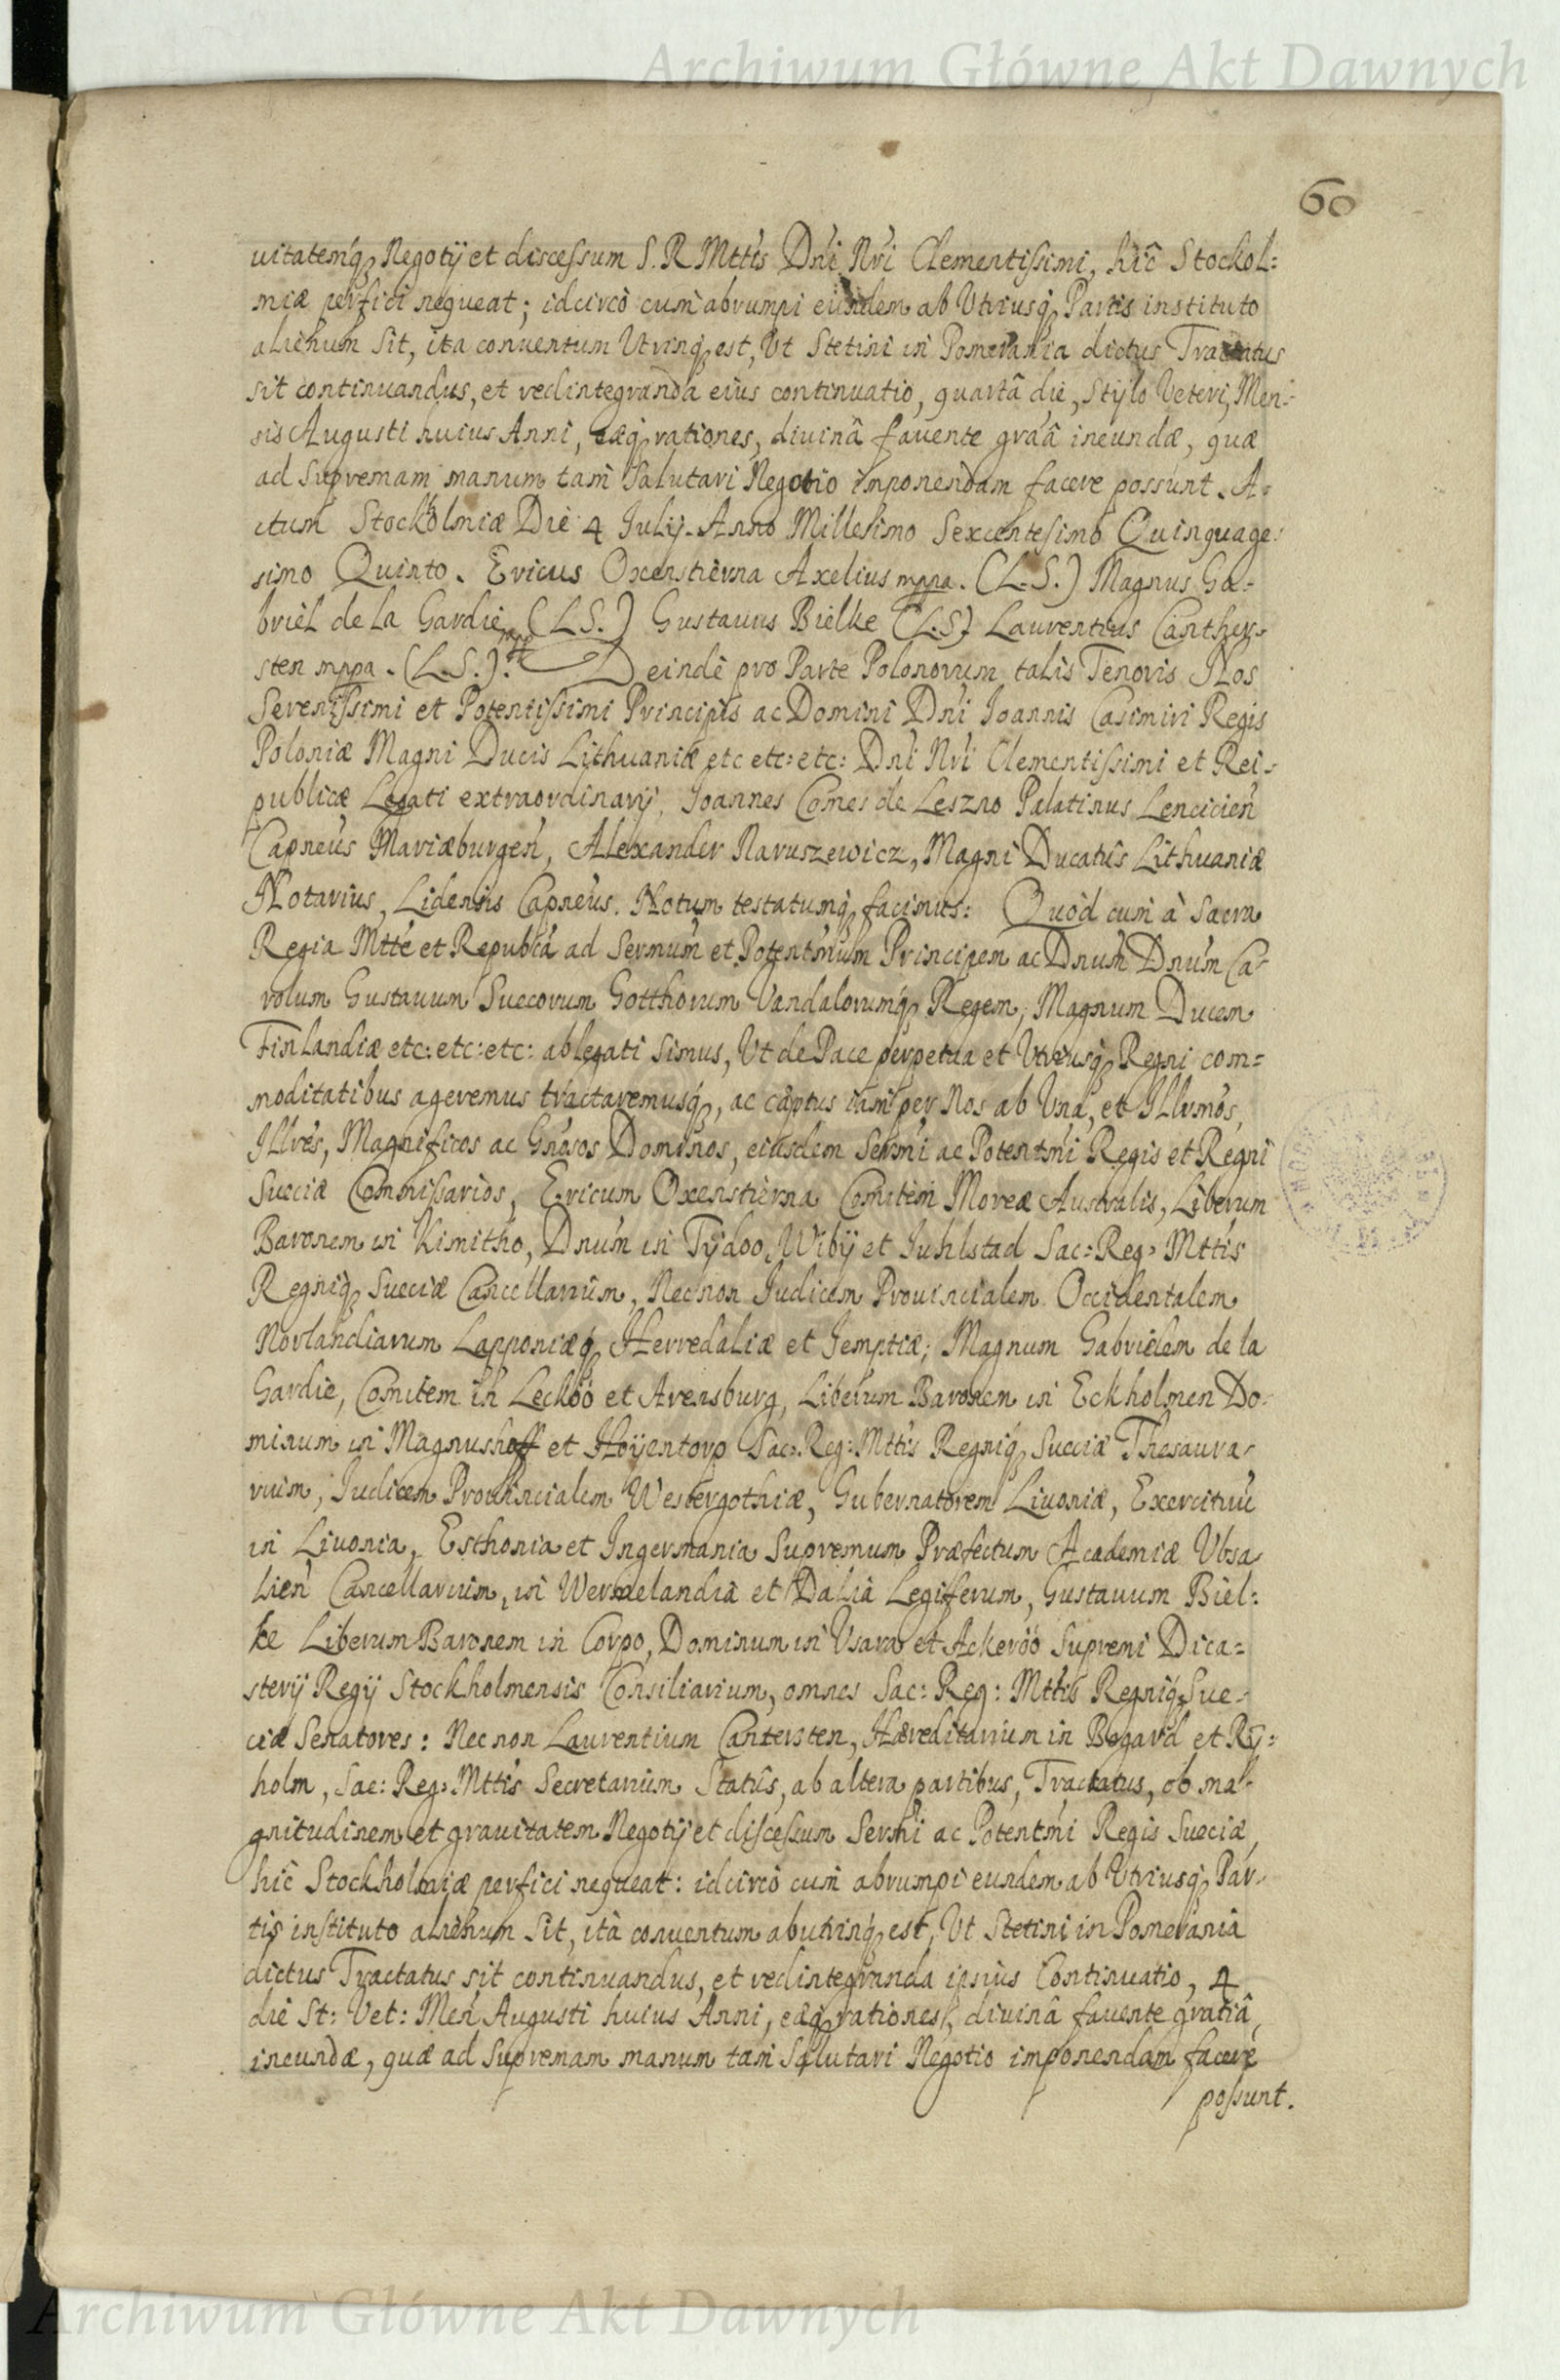 Archiwum Główne Akt Dawnych
60
uitatemq́ Negotÿ et discessum S. R Mttis Dni Nri Clementissimi, hîc Stockol:
miæ perfici nequeat; idcircò cum abrumpi eundem ab Utriusq́ Partis instituto
alienum sit, ita conuentum Utrinq́ est, Ut Stetini in Pomerania dictus Tractatus
sit continuandus, et redintegranda eius continuatio, quartâ die, Stÿlo Veteri, Men-
sis Augusti huius Anni, eæq́ rationes, diuinâ fauente graâ ineundæ, quæ
ad Supremam manum tam Salutari Negotio imponendam facere possunt. A-
ctum Stockholmiæ Die 4 Iulij. Anno Millesimo Sexcentesimo Quinquage-
simo Quinto. Ericus Oxenstierna Axelius mppa. (L.S.) Magnus Ga-
briel de la Gardie mpp (L.S.) Gustauus Bielke (L.S) Laurentius Canther-
sten mppa. (L.S.). Deindè pro Parte Polonorum talis Tenoris Nos
Serenissimi et Potentissimi Principis ac Domini Dni Ioannis Casimiri Regis
Poloniæ Magni Ducis Lithuaniæ etc etc: etc: Dni Nri Clementissimi et Rei-
publicæ Legati extraordinarij, Ioannes Comes de Leszno Palatinus Lencicień
Capneus Mariæburgeń, Alexander Naruszewicz, Magni Ducatûs Lithuaniæ
Notarius, Lidensis Capneus. Notum testatumq́ facimus: Quòd cum à Sacra
Regia Mtte et Republca ad Sermum et Potentmum Principem ac Dnum Dnum Ca-
rolum Gustauum Suecorum Gotthorum Vandalorumq́ Regem, Magnum Ducem
Finlandiæ etc: etc: etc: ablegati simus, Ut de Pace perpetua et Utriusq́ Regni com=
moditatibus ageremus tractaremusq́, ac cæptus iam per Nos ab Una, et Illrmos,
Illres, Magnificos ac Gnosos Dominos, eiusdem Sermi ac Potentmi Regis et Regni
Sueciæ Commissarios, Ericum Oxenstierna Comitem Moreæ Australis, Liberum
Baronem in Kimitho, Dnum in Tÿdoo, Wibÿ et Iuhlstad Sac: Reg: Mttis
Regniq́ Sueciæ Cancellarium, Necnon Iudicem Prouincialem Occidentalem
Norlandiarum Lapponiæq́ Herredaliæ et Iemptiæ; Magnum Gabrielem de la
Gardie, Comitem in Leckoö et Arensburg, Liberum Baronem in Eckholmen Do-
minum in Magnushoff et Hoÿentorp Sac: Reg: Mttis Regniq́ Sueciæ Thesaura-
rium, Iudicem Prouincialem Westergothiæ, Gubernatorem Liuoniæ, Exercituu
in Liuonia, Esthonia et Ingermania Supremum Præfectum Academiæ Ubsa-
lień Cancellarium, in Wermelandia et Dalia Legiferum, Gustauum Biel=
ke Liberum Baronem in Corpo, Dominum in Usara et Ackeroö Supremi Dica=
sterÿ Regÿ Stockholmensis Consiliarium, omnes Sac: Reg: Mttis Regniq́ Sue-
ciæ Senatores: Necnon Laurentium Cantersten, Hæreditarium in Bogard et Rÿ=
holm, Sac: Reg: Mttis Secretarium Statûs, ab altera partibus, Tractatus, ob ma-
gnitudinem et grauitatem Negotÿ et discessum Sermi ac Potentmi Regis Sueciæ,
hîc Stockholmiæ perfici nequeat: idcircò cum abrumpi eundem ab Utriusq́ Par-
tis instituto alienum sit, ità conuentum ab utrinq́ est, Ut Stetini in Pomerania
dictus Tractatus sit continuandus, et redintegranda ipsius Continuatio, 4
die St: Vet: Meń Augusti huius Anni, eæq́ rationes, diuinâ fauente gratiâ,
ineundæ, quæ ad Supremam manum tam Salutari Negotio imponendam facere
possunt.
Archiwum Główne Akt Dawnych